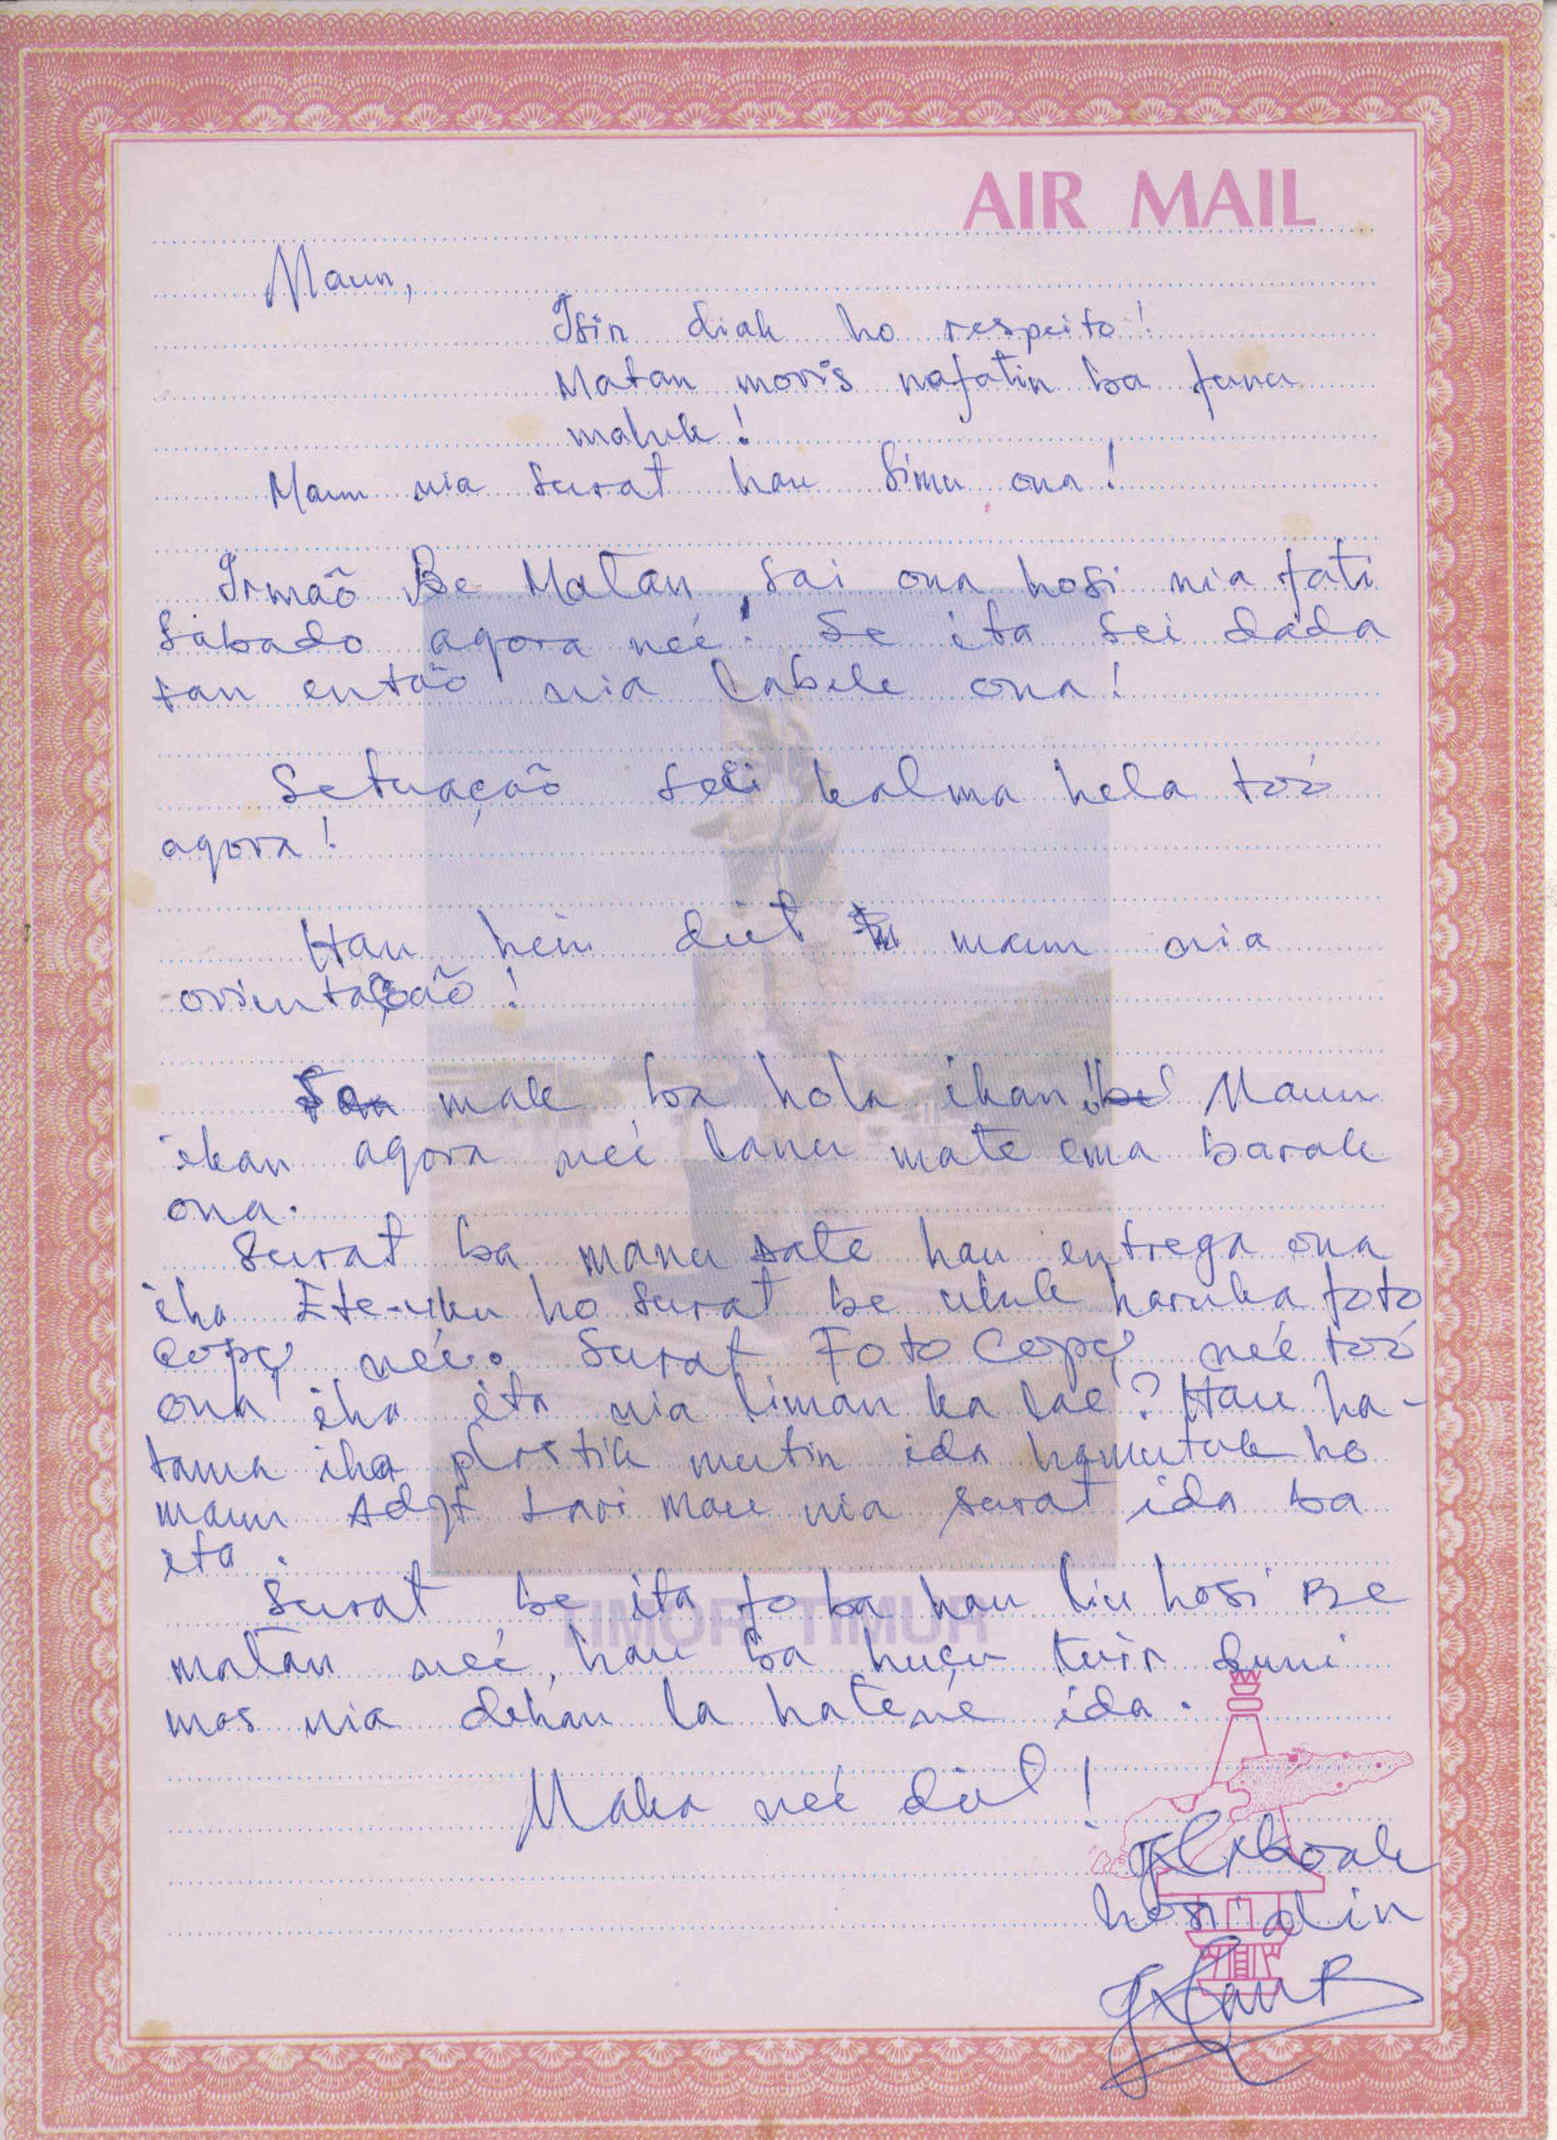 AIR MAIL
Maun,
Isin diak ho respeito!
Matan moris nafatin ba funu
maluk!
Maun nia surat hau simu ona!
Irmaõ Be Matan, sai ona hosi nia fati
sabado agora neé! Se ita sei dada
tan entaõ nia labele ona!
Setuaçaõ sei kalma hela toó
agora!
Hau hein deit maun nia
orientaçaõ!
mak ba hola ikan! Maun
ikan agora neé lanu mate ema barak
ona.
Surat ba manu sate hau entrega ona
iha Ete-uku ho surat be uluk haruka foto
copy neé. Surat Foto Copy neé toó
ona iha ita nia liman ka lae? Hau ha-
tama iha plastik mutin ida hamutuk ho
maun Adjt Lari Mau nia surat ida ba
ita.
Surat be ita fo ba hau liu hosi Be
matan neé, hau ba huçu tuir duni
mos nia dehan la hatene ida.
TIMOR TIMUR
Maka neé deit!
hosi alin